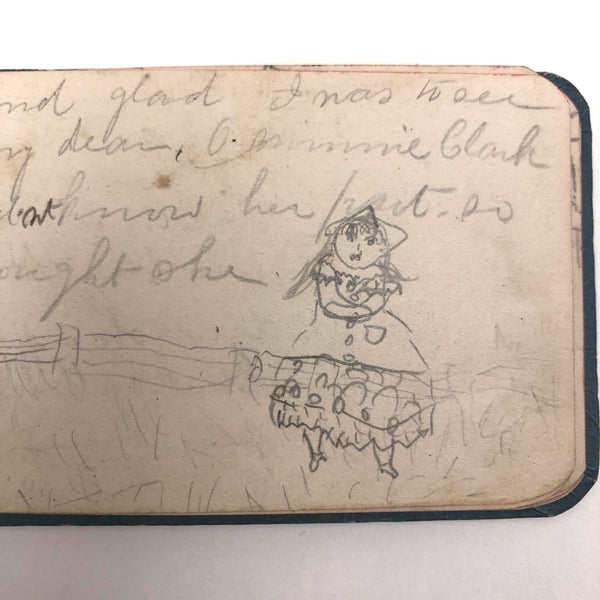 nd glad I was to see
my dear, O minnie Clark
know her part. so
ought she.